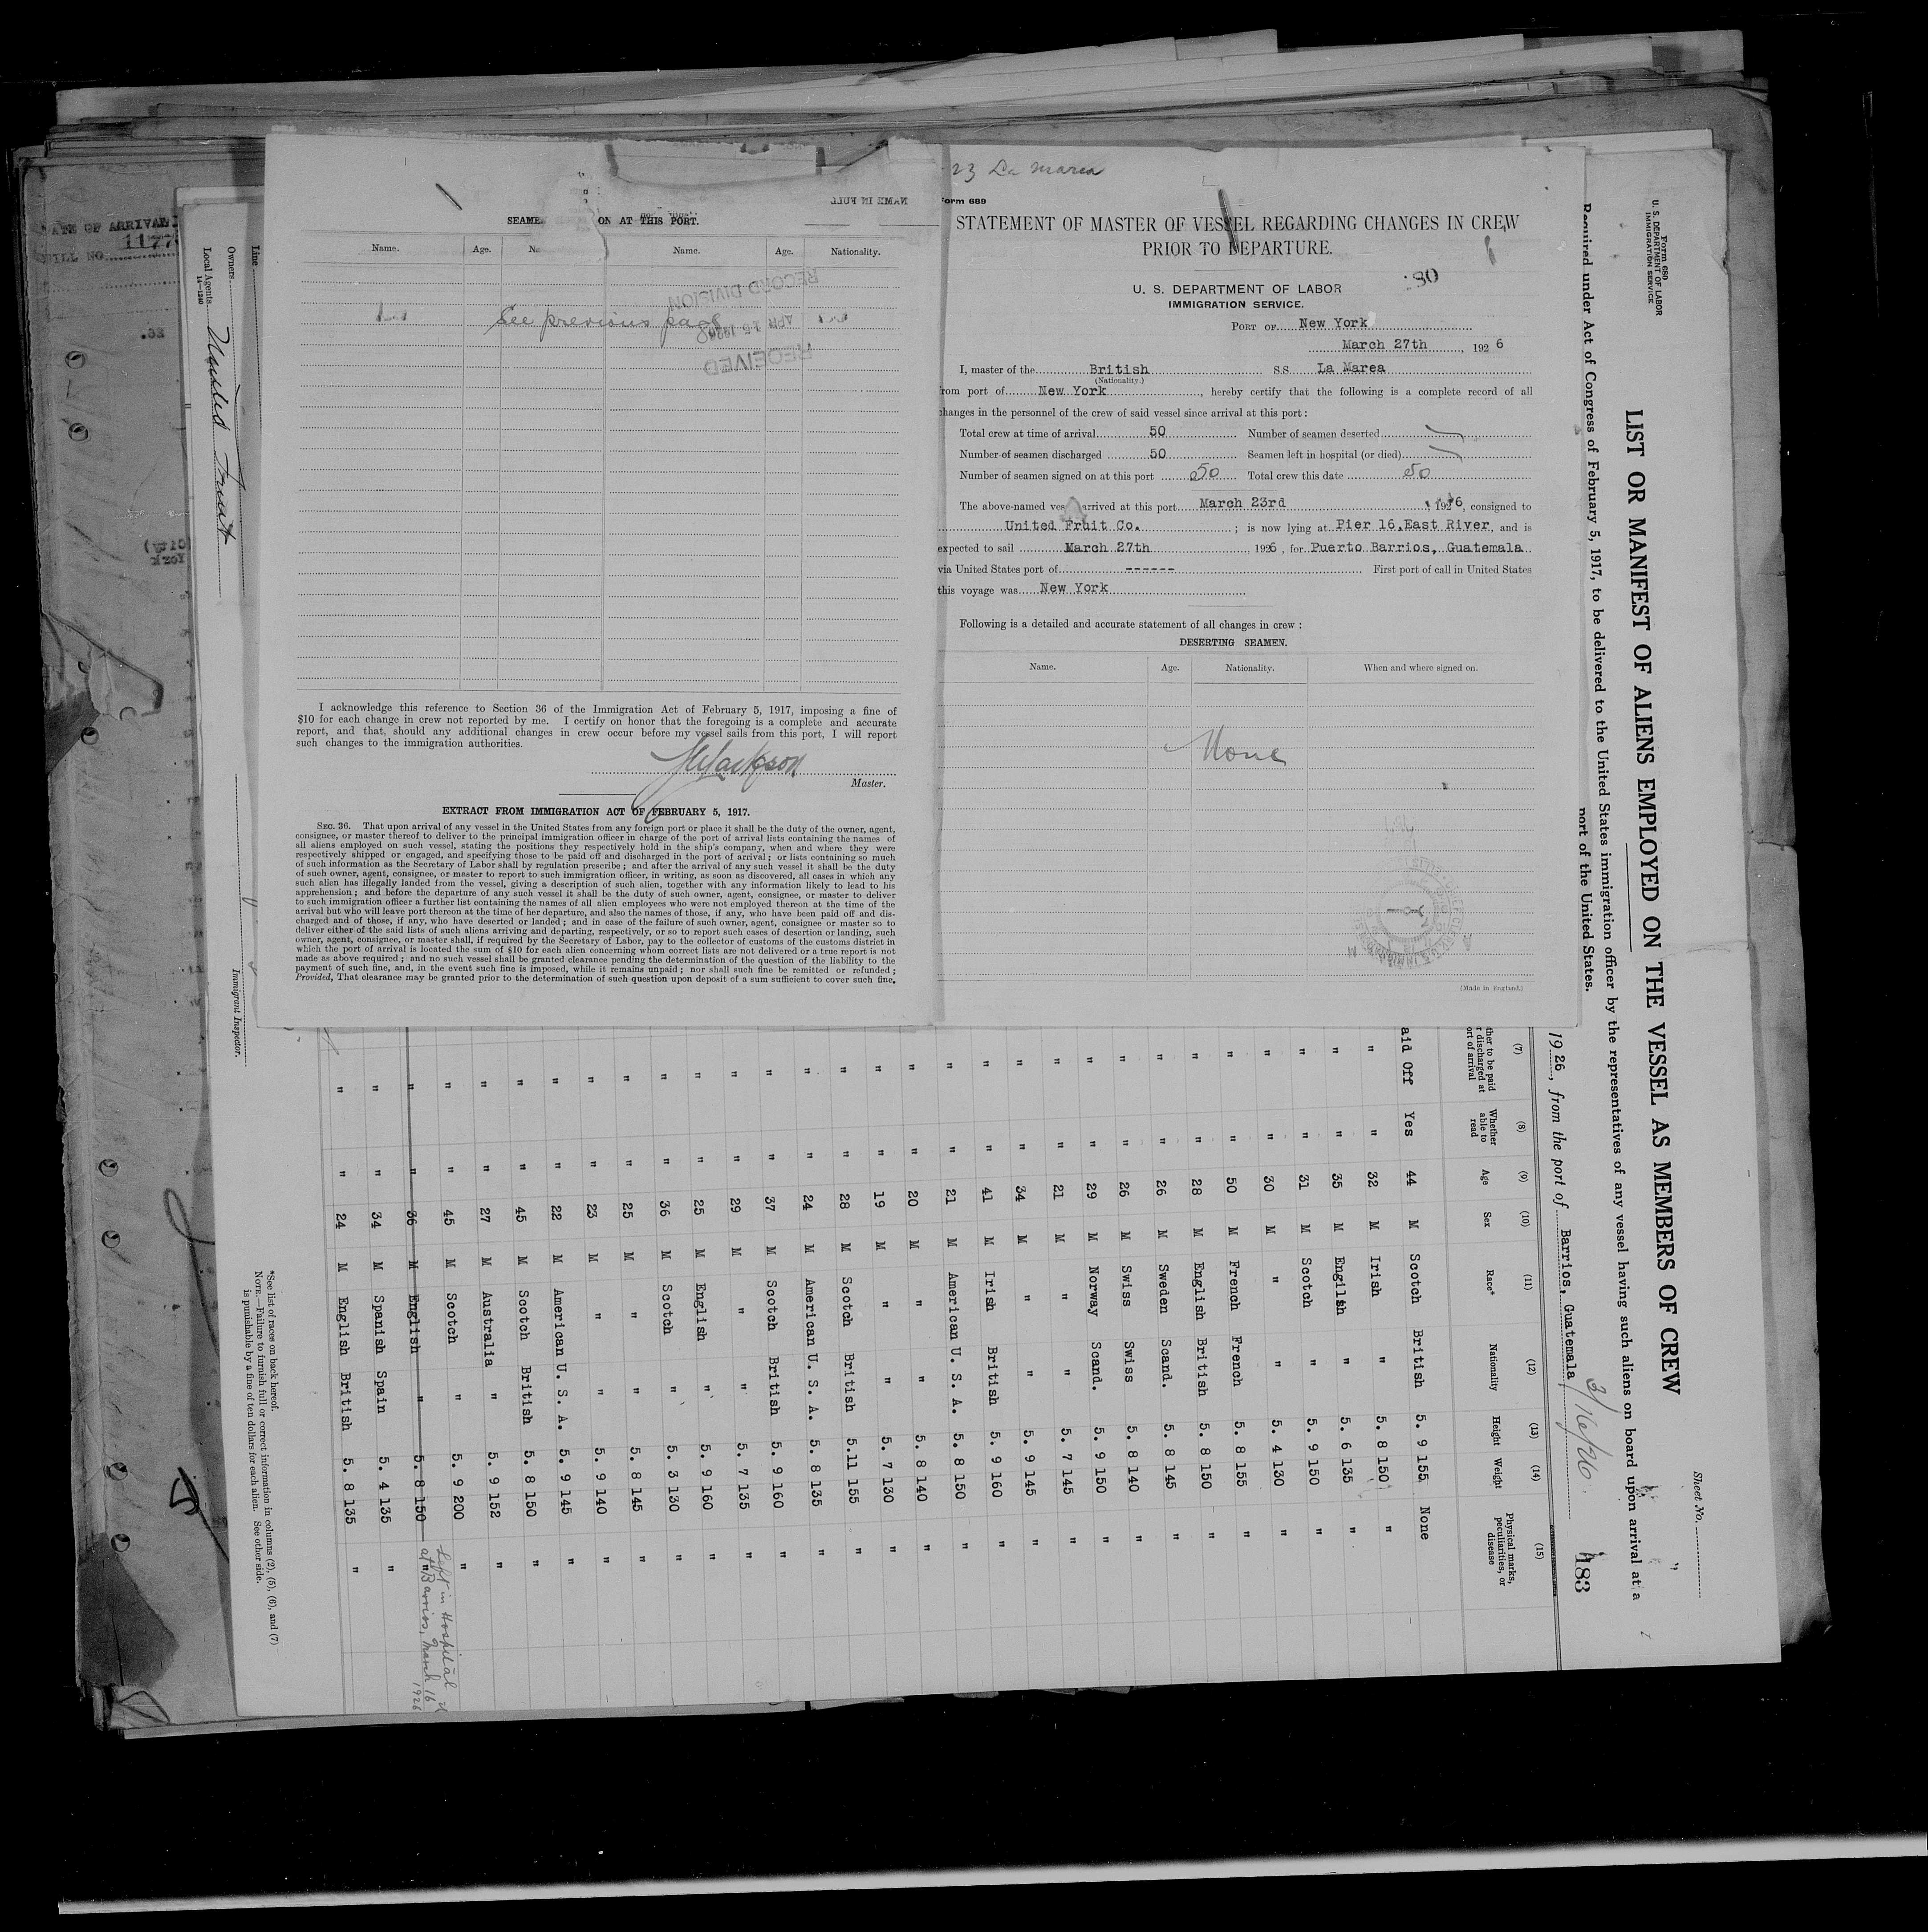 23 La Marea
Form 689
STATEMENT OF MASTER OF VESSEL REGARDING CHANGES IN CREW
PRIOR TO DEPARTURE.
80
U. S. DEPARTMENT OF LABOR
IMMIGRATION SERVICE.
PORT OF New York
March 27th, 1926
I, master of the British SS La Marea
(Nationality.)
from port of New York, hereby certify that the following is a complete record of all
changes in the personnel of the crew of said vessel since arrival at this port:
Total crew at time of arrival 50 Number of seamen deserted
Number of seamen discharged 50 Seamen left in hospital (or died)
Number of seamen signed on at this port 50 Total crew this date 50
The above-named ves arrived at this port March 23rd, 1926, consigned to
United Fruit Co. ; is now lying at Pier 16, East River, and is
expected to sail March 27th 1926, for Puerto Barrios, Guatemala
via United States port of ------ First port of call in United States
this voyage was New York
Following is a detailed and accurate statement of all changes in crew:
DESERTING SEAMEN.
Name. Age. Nationality. When and where signed on.
None
(Made in England.)
NAME IN FULL
SEAME ON AT THIS PORT.
Name. Age. Na Name. Age. Nationality.
RECORD DIVISION
See previous page
RECEIVED
I acknowledge this reference to Section 36 of the Immigration Act of February 5, 1917, imposing a fine of
$10 for each change in crew not reported by me. I certify on honor that the foregoing is a complete and accurate
report, and that, should any additional changes in crew occur before my vessel sails from this port, I will report
such changes to the immigration authorities.
Jackson
Master.
EXTRACT FROM IMMIGRATION ACT OF FEBRUARY 5, 1917.
SEC. 36. That upon arrival of any vessel in the United States from any foreign port or place it shall be the duty of the owner, agent,
consignee, or master thereof to deliver to the principal immigration officer in charge of the port of arrival lists containing the names of
all aliens employed on such vessel, stating the positions they respectively hold in the ship's company, when and where they were
respectively shipped or engaged, and specifying those to be paid off and discharged in the port of arrival; or lists containing so much
of such information as the Secretary of Labor shall by regulation prescribe; and after the arrival of any such vessel it shall be the duty
of such owner, agent, consignee, or master to report to such immigration officer, in writing, as soon as discovered, all cases in which any
such alien has illegally landed from the vessel, giving a description of such alien, together with any information likely to lead to his
apprehension; and before the departure of any such vessel it shall be the duty of such owner, agent, consignee, or master to deliver
to such immigration officer a further list containing the names of all alien employees who were not employed thereon at the time of the
arrival but who will leave port thereon at the time of her departure, and also the names of those, if any, who have been paid off and dis-
charged and of those, if any, who have deserted or landed; and in case of the failure of such owner, agent, consignee or master so to
deliver either of the said lists of such aliens arriving and departing, respectively, or so to report such cases of desertion or landing, such
owner, agent, consignee, or master shall, if required by the Secretary of Labor, pay to the collector of customs of the customs district in
which the port of arrival is located the sum of $10 for each alien concerning whom correct lists are not delivered or a true report is not
made as above required; and no such vessel shall be granted clearance pending the determination of the question of the liability to the
payment of such fine, and, in the event such fine is imposed, while it remains unpaid; nor shall such fine be remitted or refunded;
Provided, That clearance may be granted prior to the determination of such question upon deposit of a sum sufficient to cover such fine.
Form 689
U. S. DEPARTMENT OF LABOR
IMMIGRATION SERVICE
Sheet No.
LIST OR MANIFEST OF ALIENS EMPLOYED ON THE VESSEL AS MEMBERS OF CREW
Required under Act of Congress of February 5, 1917, to be delivered to the United States immigration officer by the representatives of any vessel having such aliens on board upon arrival at a
port of the United States.
1926, from the port of Barrios, Guatemala 3/16/26. 183
(7) (8) (9) (10) (11) (12) (13) (14) (15)
ther to be paid discharged at ort of arrival Whether able to read Age Sex Race* Nationality Height Weight Physical marks, peculiarities, or disease
aid Off Yes 44 M Scotch British 5. 9 155 None
" " 32 M Irish " 5. 8 150 "
" " 35 M English " 5. 6 135 "
" " 31 M Scotch " 5. 9 150 "
" " 30 M " " 5. 4 130 "
" " 50 M French French 5. 8 155 "
" " 28 M English British 5. 8 150 "
" " 26 M Sweden Scand. 5. 8 145 "
" " 26 M Swiss Swiss 5. 8 140 "
" " 29 M Norway Scand. 5. 9 150 "
" " 21 M " " 5. 7 145 "
" " 34 M " " 5. 9 145 "
" " 41 M Irish British 5. 9 160 "
" " 21 M American U. S. A. 5. 8 150 "
" " 20 M " " 5. 8 140 "
" " 19 M " " 5. 7 130 "
" " 28 M Scotch British 5.11 155 "
" " 24 M American U. S. A. 5. 8 135 "
" " 37 M Scotch British 5. 9 160 "
" " 29 M " " 5. 7 135 "
" " 25 M English " 5. 9 160 "
" " 36 M Scotch " 5. 3 130 "
" " 25 M " " 5. 8 145 "
" " 23 M " " 5. 9 140 "
" " 22 M American U. S. A. 5. 9 145 "
" " 45 M Scotch British 5. 8 150 "
" " 27 M Australia " 5. 9 152 "
" " 45 M Scotch " 5. 9 200 "
" " 36 M English " 5. 8 150 " Left in Hospital at Barrios, March 16 1926
" " 34 M Spanish Spain 5. 4 135 "
" " 24 M English British 5. 8 135 "
*See list of races on back hereof.
NOTE.—Failure to furnish full or correct information in columns (2), (5), (6), and (7)
is punishable by a fine of ten dollars for each alien. See other side.
Immigrant Inspector.
Line
Owners
Local Agents United Fruit
14—1240
DATE OF ARRIVAL
1177